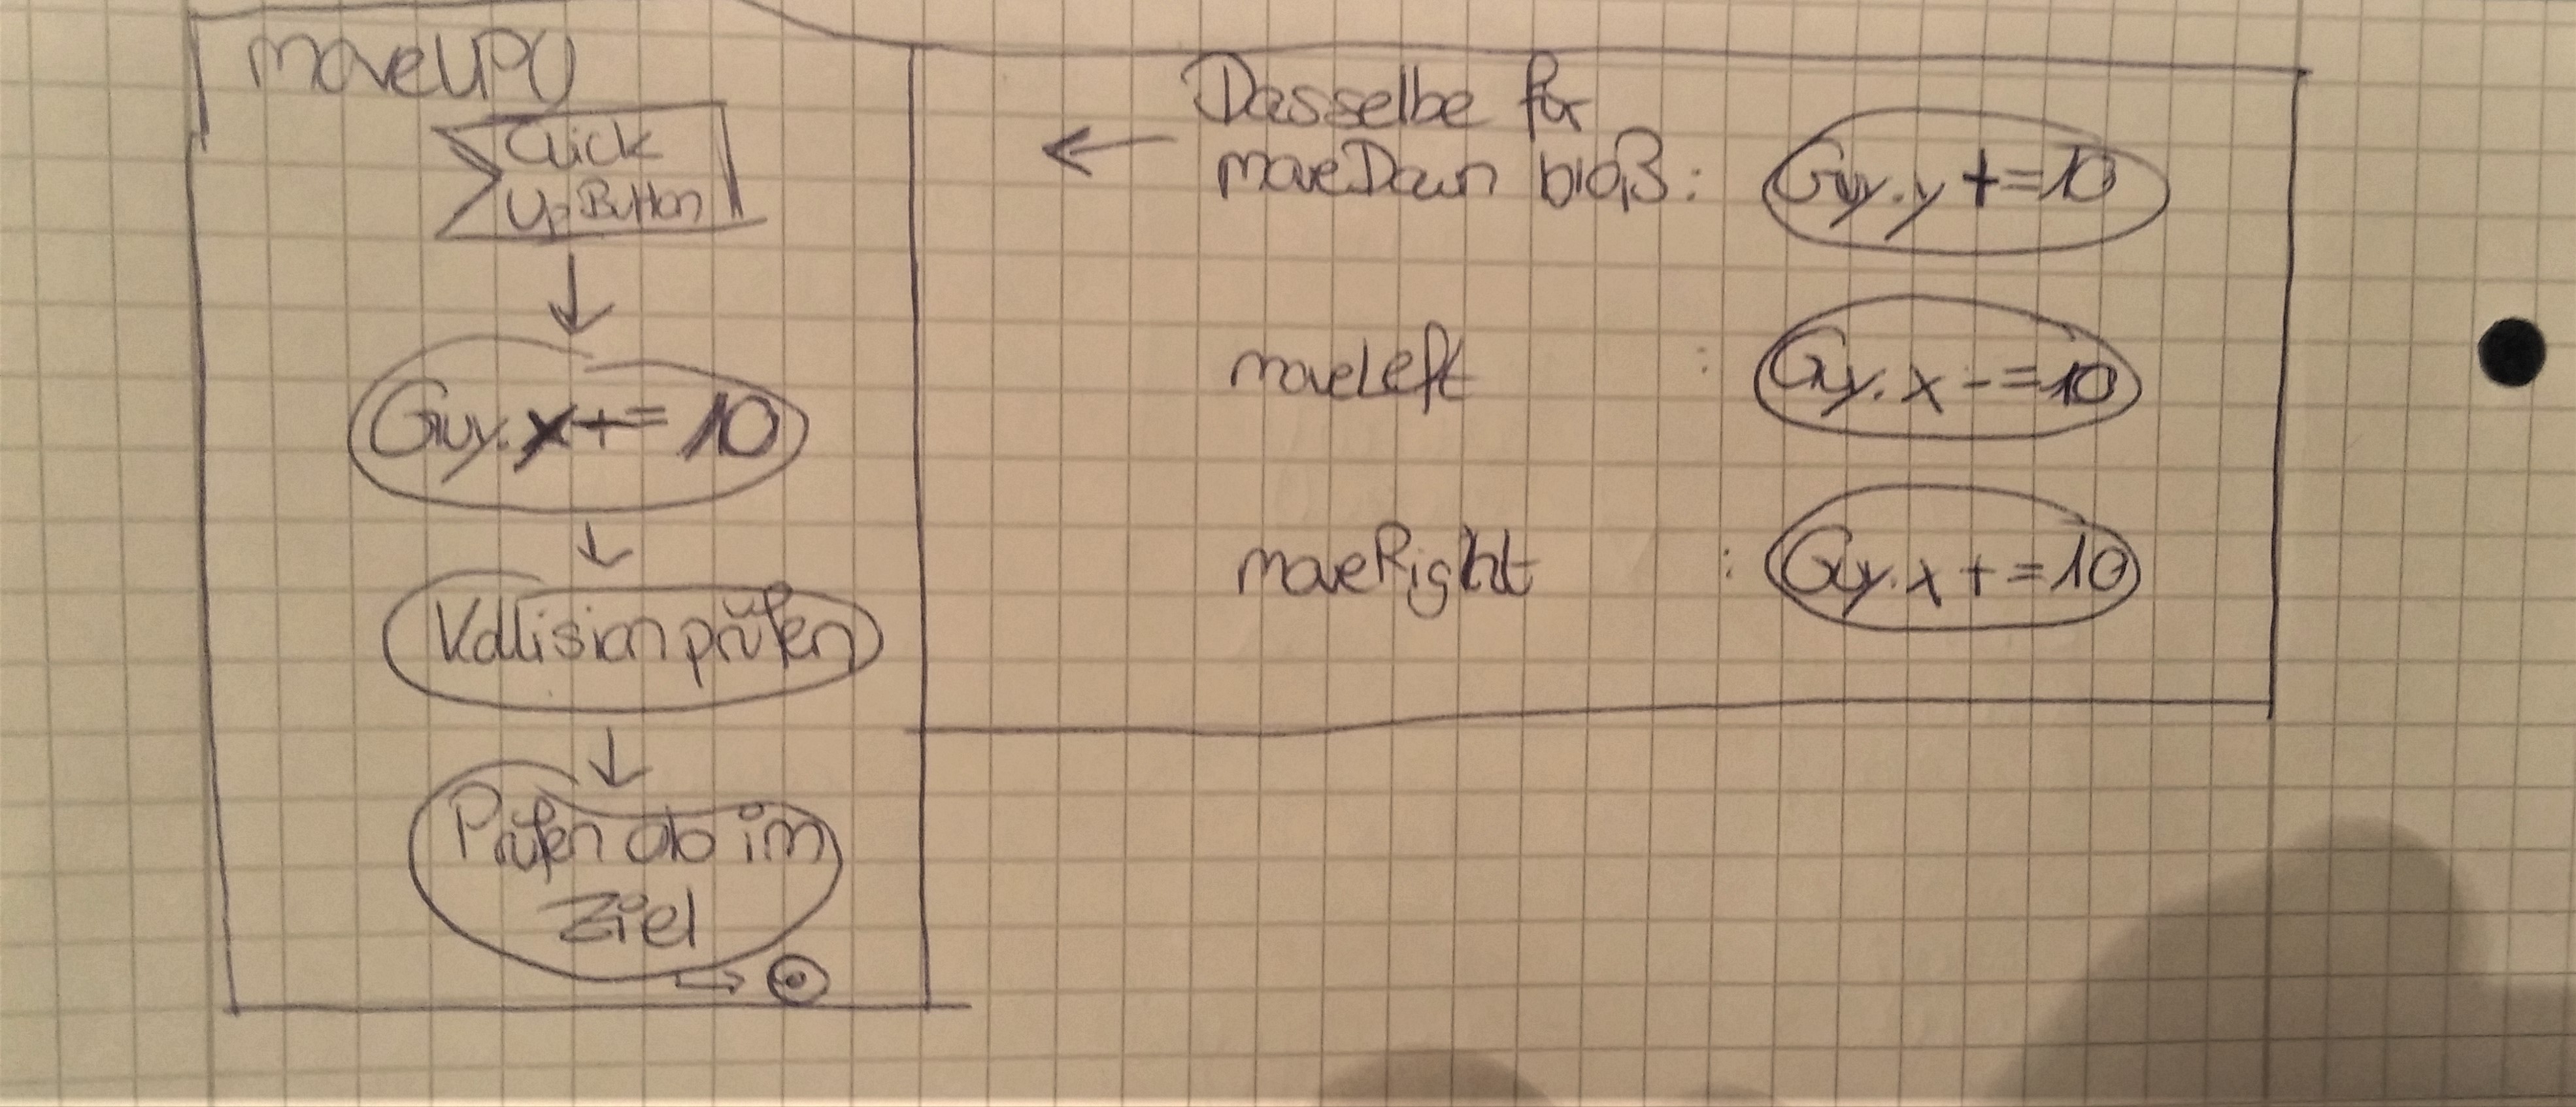 moveUP()
Click
Up Button
Guy.x+= 10
Kollision prüfen
Prüfen ob im
Ziel
Dasselbe für
moveDown bloß:
Guy.y +=10
moveLeft : Guy.x -=10
moveRight : Guy.x +=10